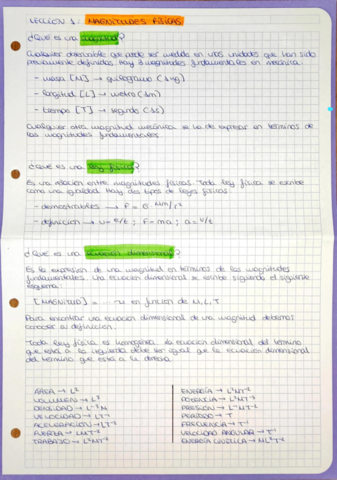 LECCIÓN 1: MAGNITUDES FÍSICAS
¿Qué es una magnitud?
Cualquier observable que puede ser medido en unas unidades que han sido
previamente definidas. Hay 3 magnitudes fundamentales en mecánica
- masa [M] → quilogramo (1kg)
- longitud [L] → metro (1m)
- tiempo [T] → segundo (1s)
Cualquier otra magnitud mecánica se ha de expresar en términos de
las magnitudes fundamentales
¿Qué es una ley física?
Es una relación entre magnitudes físicas. Toda ley física se escribe
como una igualdad. Hay dos tipos de leyes físicas
- demostrables → F = G · Mm/r²
- definición → v = e/t ; F = ma ; a = v/t
¿Qué es una ecuación dimensional?
Es la expresión de una magnitud en términos de las magnitudes
fundamentales. Una ecuación dimensional se escribe siguiendo el siguiente
esquema:
[MAGNITUD] = ... en función de M, L, T
Para encontrar una ecuación dimensional de una magnitud debemos
conocer su definición.
Toda ley física es homogénea: la ecuación dimensional del término
que está a la izquierda debe ser igual que la ecuación dimensional
del término que está a la derecha.
ÁREA → L²
VOLUMEN → L³
DENSIDAD → L⁻³M
VELOCIDAD → LT⁻¹
ACELERACIÓN → LT⁻²
FUERZA → LMT⁻²
TRABAJO → L²MT⁻²
ENERGÍA → L²MT⁻²
POTENCIA → L²MT⁻³
PRESIÓN → L⁻¹MT⁻²
PERÍODO → T
FRECUENCIA → T⁻¹
VELOCIDAD ANGULAR → T⁻¹
ENERGÍA CINÉTICA → ML²T⁻²